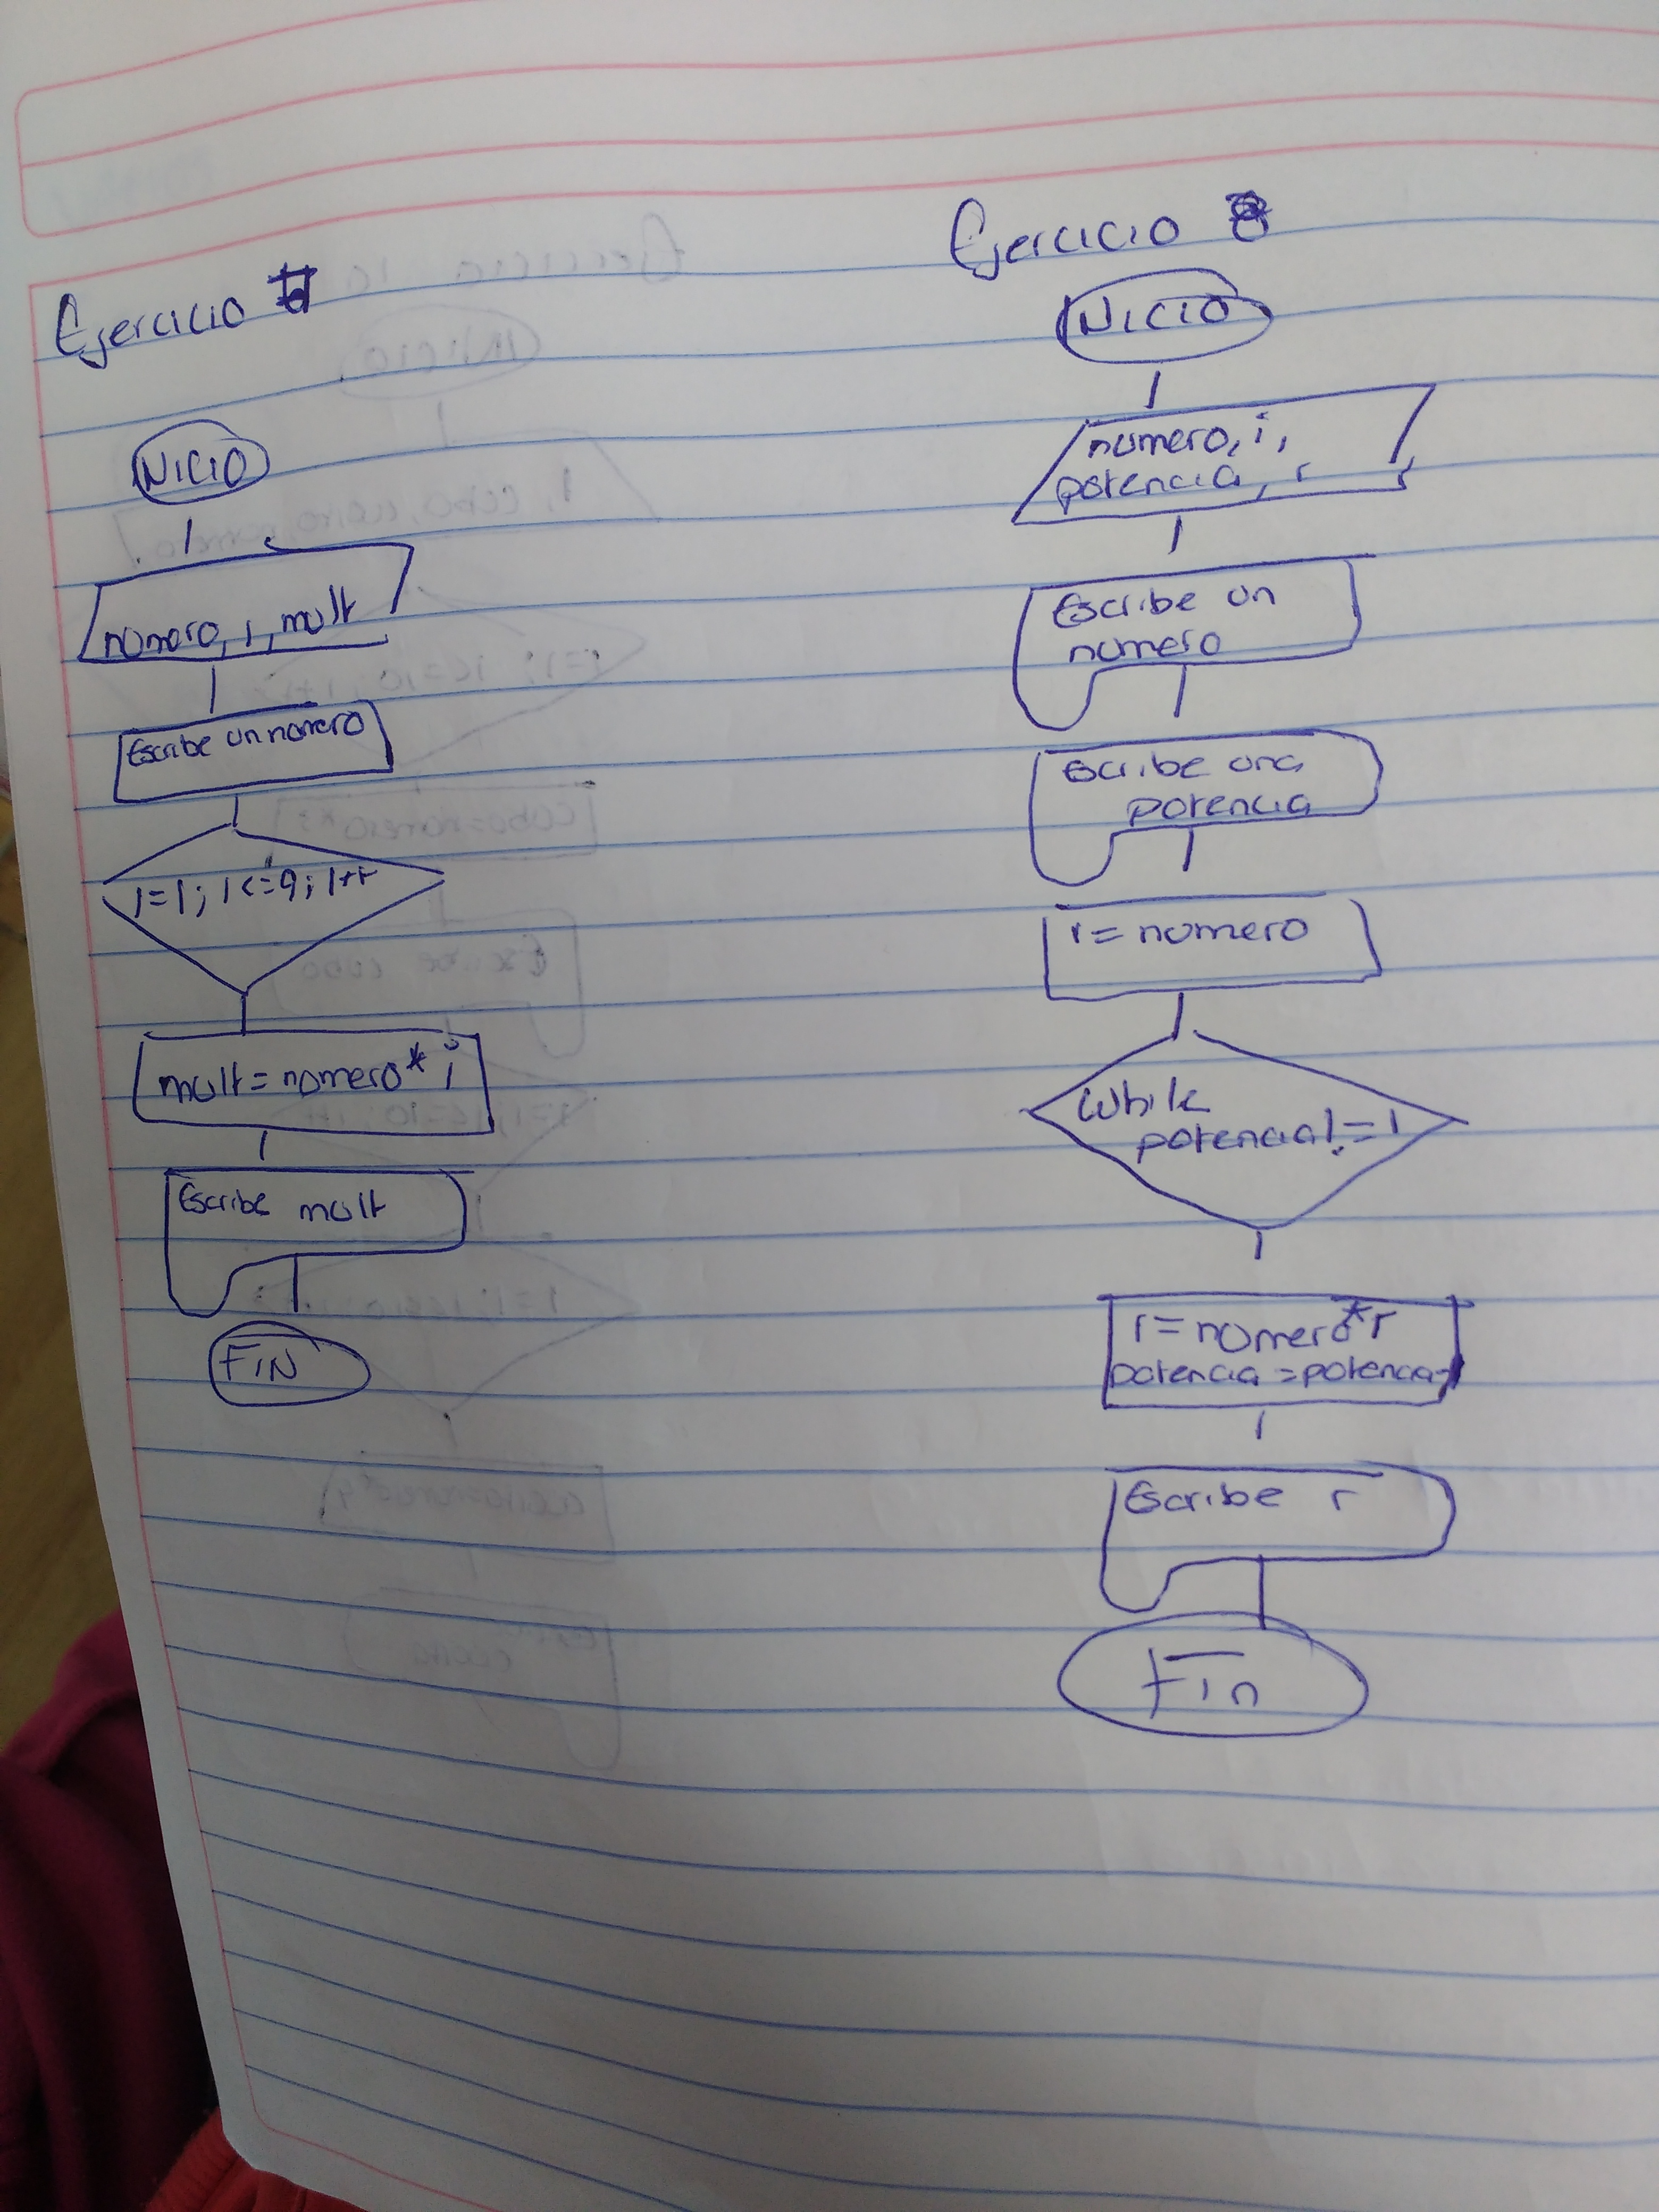 Ejercicio
INICIO
numero, i, mult
Escribe un numero
i=1; i<=9; i++
mult=numero*i
Escribe mult
FIN
Ejercicio 8
INICIO
numero, i,
potencia, r
Escribe un
numero
Escribe una
potencia
r=numero
While
potencia!=1
r=numero*r
potencia=potencia-1
Escribe r
Fin